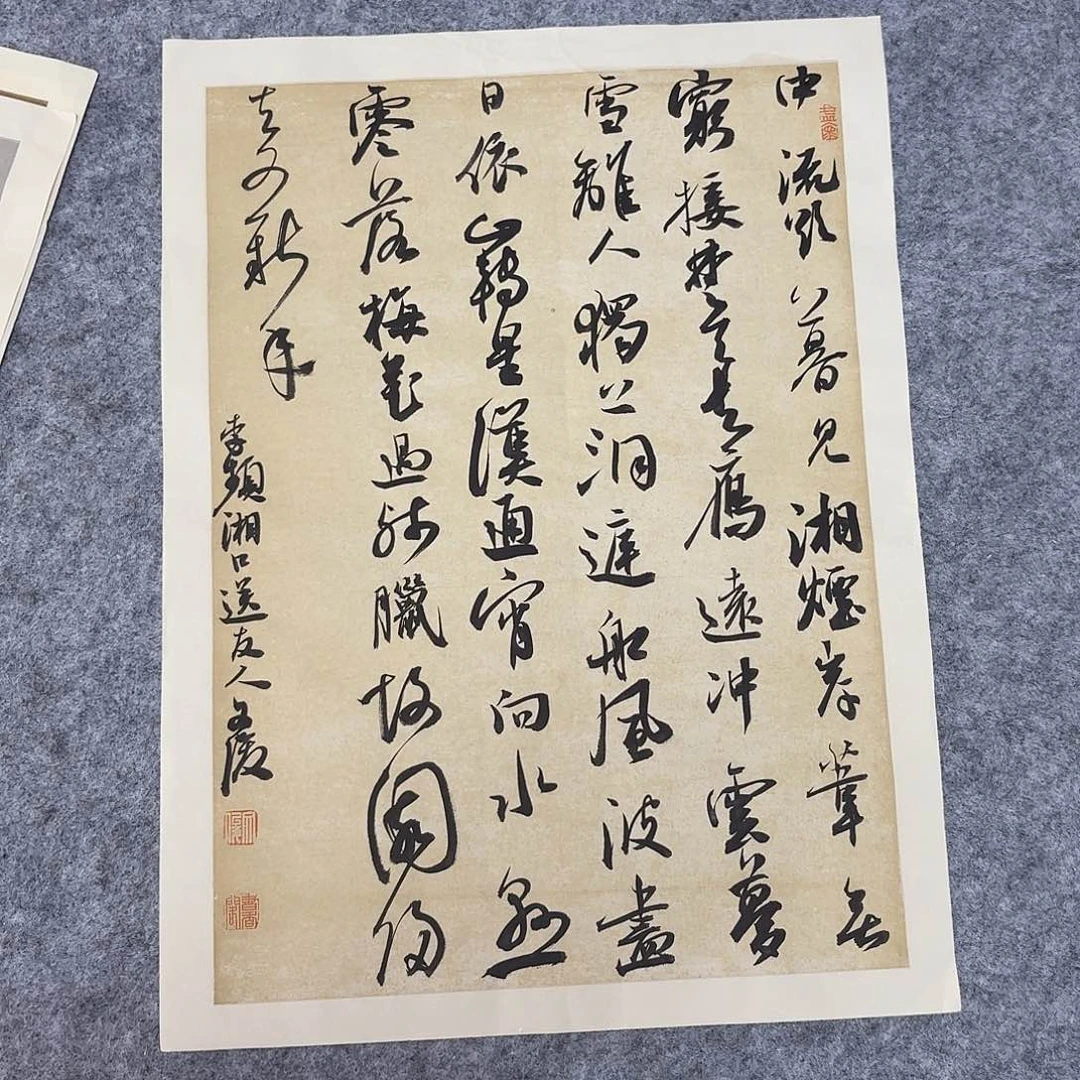 中流欲暮見湘煙岸葦無
窮接楚田去鴈遠冲雲夢
雪離人獨上洞庭船風波盡
日依山轉星漢通宵向水懸
零落梅花過殘臘故園歸
去又新年
李頻湘口送友人